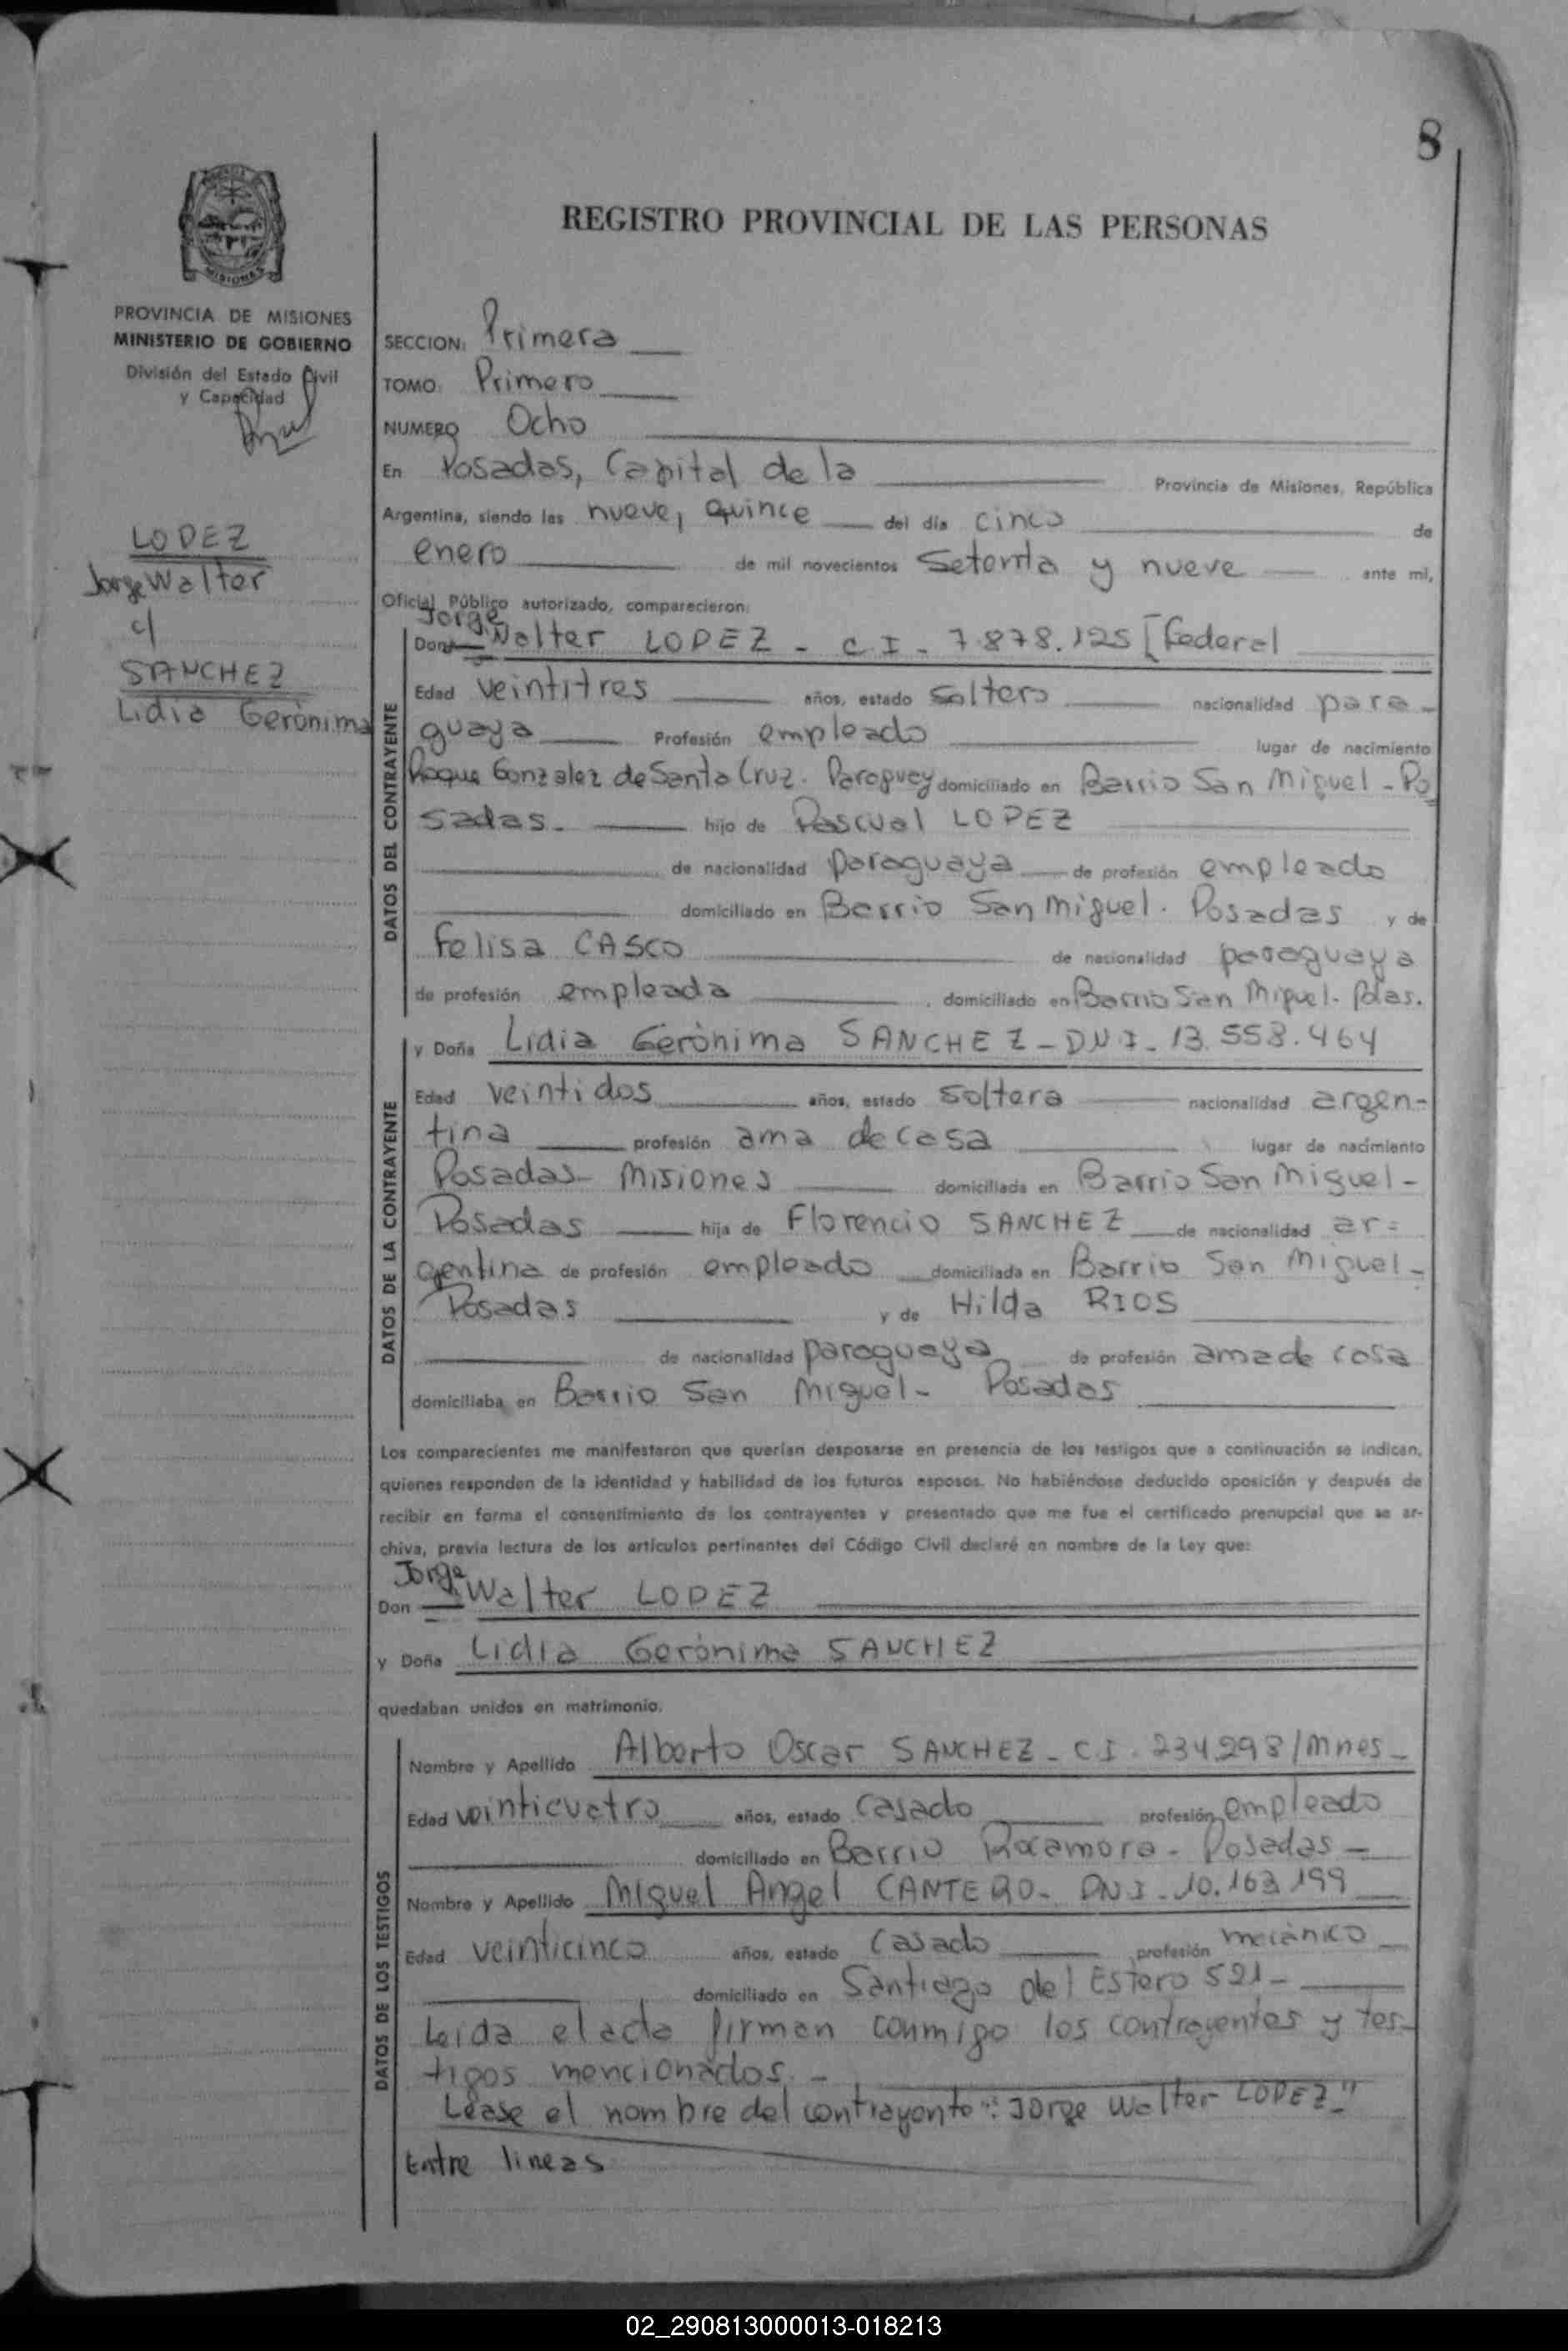 8
REGISTRO PROVINCIAL DE LAS PERSONAS
PROVINCIA DE MISIONES
MINISTERIO DE GOBIERNO
División del Estado Civil
y Capacidad
LOPEZ
Jorge Walter
c/
SANCHEZ
Lidia Gerònima
SECCION: Primera
TOMO: Primero
NUMERO Ocho
En Posadas, Capital de la Provincia de Misiones, República
Argentina, siendo las nueve, quince del día cinco de
enero de mil novecientos Setenta y nueve ante mi,
Oficial Público autorizado, comparecieron:
Jorge
Don Walter LOPEZ - C I - 7.878.125 [Federal
DATOS DEL CONTRAYENTE
Edad veintitres años, estado Soltero nacionalidad para-
guaya Profesión empleado lugar de nacimiento
Roque Gonzalez de Santa Cruz. Paraguay domiciliado en Barrio San Miguel - Po
sadas. - hijo de Pascual LOPEZ
de nacionalidad paraguaya de profesión empleado
domiciliado en Barrio San Miguel. Posadas y de
Felisa CASCO de nacionalidad paraguaya
de profesión empleada , domiciliado en Barrio San Miguel - Pdas.
y Doña Lidia Gerònima SANCHEZ - DNI - 13.558.464
DATOS DE LA CONTRAYENTE
Edad veintidos años, estado Soltera nacionalidad argen-
tina profesión ama de casa lugar de nacimiento
Posadas - Misiones domiciliada en Barrio San Miguel -
Posadas hija de Florencio SANCHEZ de nacionalidad ar=
gentina de profesión empleado domiciliada en Barrio San Miguel -
Posadas y de Hilda RIOS
de nacionalidad paraguaya de profesión ama de casa
domiciliaba en Barrio San Miguel - Posadas
Los comparecientes me manifestaron que querían desposarse en presencia de los testigos que a continuación se indican,
quienes responden de la identidad y habilidad de los futuros esposos. No habiéndose deducido oposición y después de
recibir en forma el consentimiento de los contrayentes y presentado que me fue el certificado prenupcial que se ar-
chiva, previa lectura de los artículos pertinentes del Código Civil declaré en nombre de la Ley que:
Jorge
Don Walter LOPEZ
y Doña Lidia Gerònima SANCHEZ
quedaban unidos en matrimonio.
DATOS DE LOS TESTIGOS
Nombre y Apellido Alberto Oscar SANCHEZ - C I. 234.298/Mnes -
Edad veinticuatro años, estado Casado profesión empleado
domiciliado en Barrio Rocamora - Posadas -
Nombre y Apellido Miguel Angel CANTERO - DNI - 10.163.199
Edad veinticinco años, estado Casado profesión mecánico
domiciliado en Santiago del Estero 521 -
Leida el acta firman conmigo los contrayentes y tes-
tigos mencionados. -
Léase el nombre del contrayente: "Jorge Walter LOPEZ"
Entre lineas
02_290813000013-018213